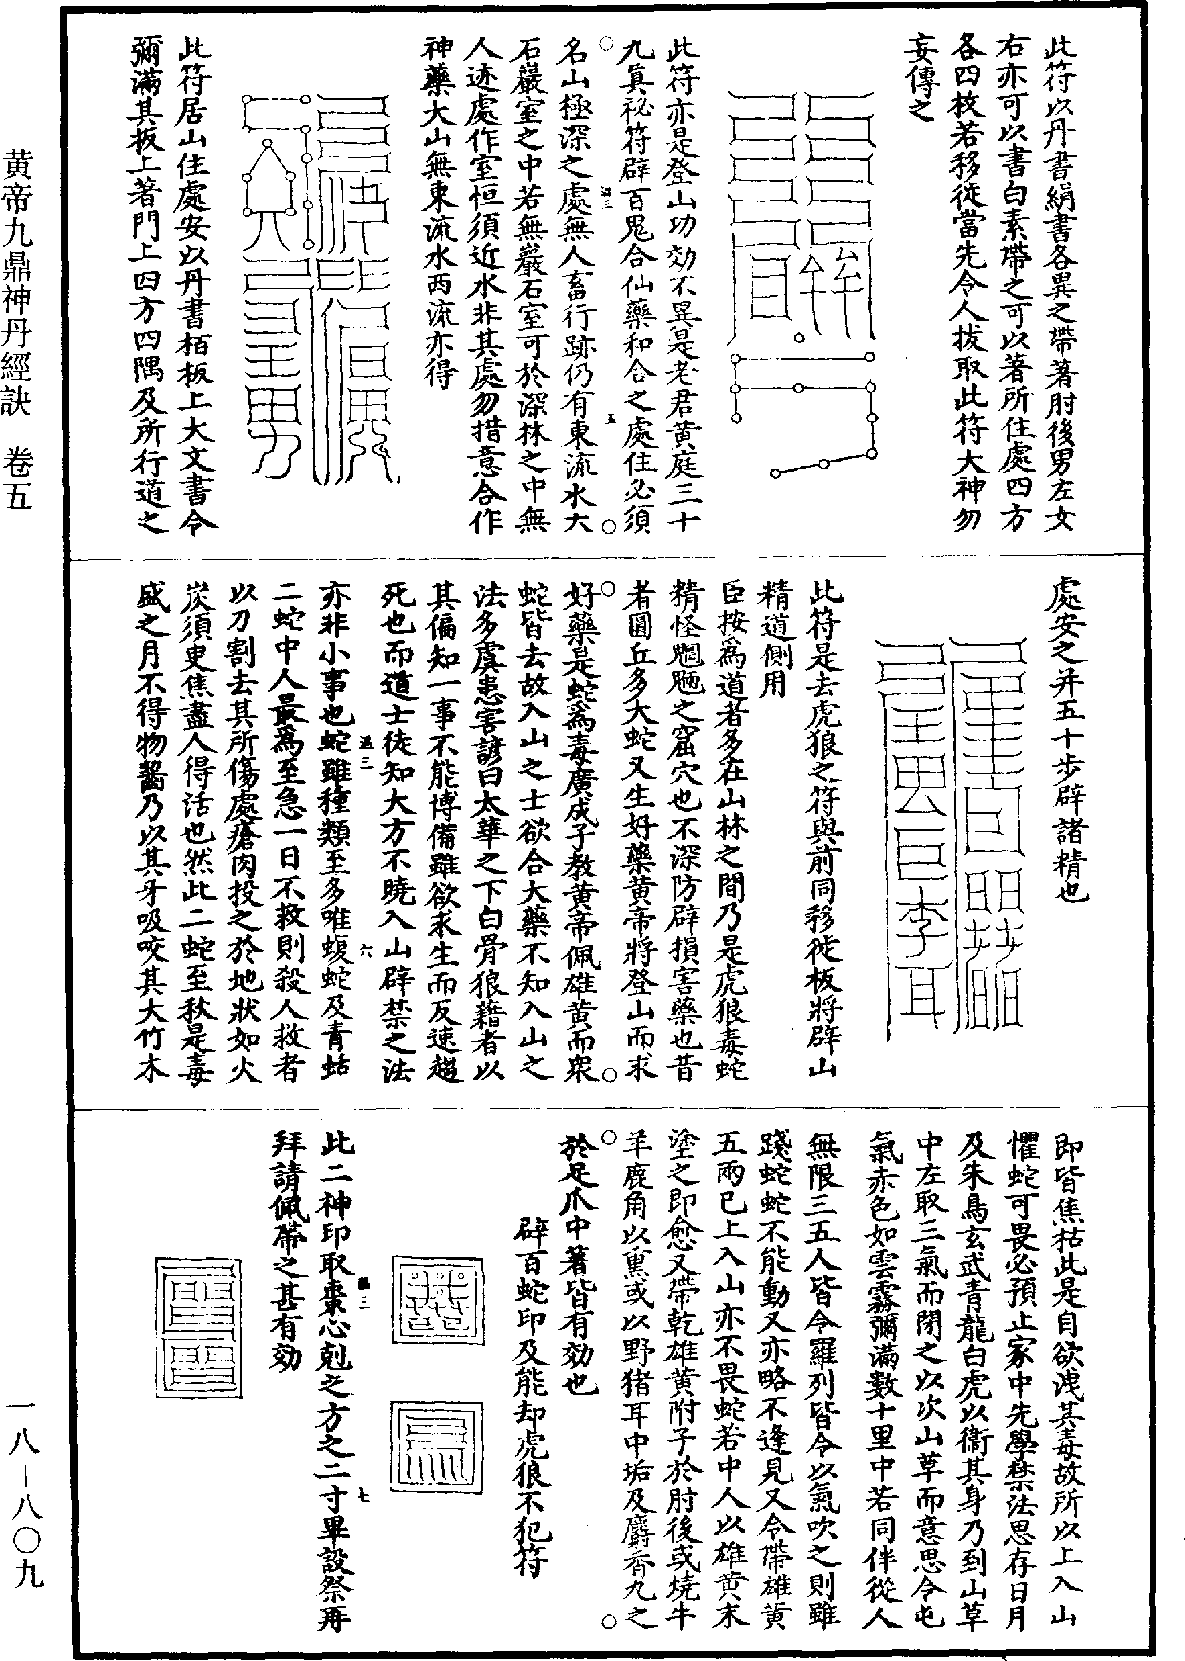 黃帝九鼎神丹經訣　卷五
一八—八〇九
此符以丹書絹書各異之帶著肘後男左女
右亦可以書白素帶之可以著所住處四方
各四枚若移徙當先令人拔取此符大神勿
妄傳之
此符亦是登山功効不異是老君黃庭三十
九真祕符辟百鬼合仙藥和合之處住必須
名山極深之處無人畜行跡仍有東流水大
石巖室之中若無巖石室可於深林之中無
人迹處作室恒須近水非其處勿措意合作
神藥大山無東流水西流亦得
此符居山住處安以丹書栢板上大文書令
彌滿其板上著門上四方四隅及所行道之
處安之并五十步辟諸精也
此符是去虎狼之符與前同移徙板將辟山
精道側用
臣按爲道者多在山林之間乃是虎狼毒蛇
精怪魍魎之窟穴也不深防辟損害藥也昔
者圓丘多大蛇又生好藥黃帝將登山而求
好藥是蛇爲毒廣成子教黃帝佩雄黃而眾
蛇皆去故入山之士欲合大藥不知入山之
法多虞患害諺曰太華之下白骨狼藉者以
其偏知一事不能博備雖欲求生而反速趨
死也而道士徒知大方不曉入山辟禁之法
亦非小事也蛇雖種類至多唯蝮蛇及青蛣
二蛇中人最爲至急一日不救則殺人救者
以刀割去其所傷處瘡肉投之於地狀如火
炭須臾焦盡人得活也然此二蛇至秋是毒
盛之月不得物齧乃以其牙吸咬其大竹木
即皆焦枯此是自欲洩其毒故所以上入山
懼蛇可畏必預止家中先學禁法思存日月
及朱鳥玄武青龍白虎以衞其身乃到山草
中左取三氣而閉之以次山草而意思令屯
氣赤色如雲霧彌滿數十里中若同伴從人
無限三五人皆令羅列皆令以氣吹之則雖
踐蛇蛇不能動又亦略不逢見又令帶雄黃
五兩已上入山亦不畏蛇若中人以雄黃末
塗之即愈又帶乾雄黃附子於肘後或燒牛
羊鹿角以熏或以野猪耳中垢及麝香丸之
於足爪中著皆有効也
辟百蛇印及能却虎狼不犯符
此二神印取棗心剋之方之二寸畢設祭再
拜請佩帶之甚有効